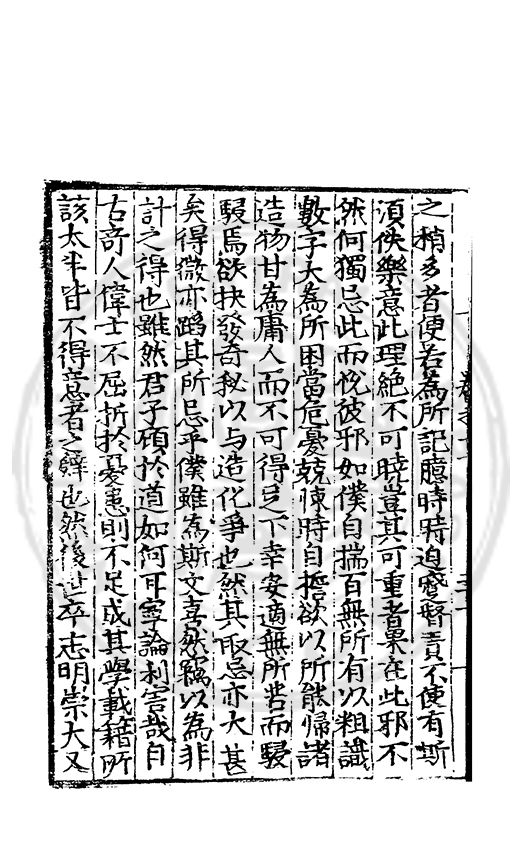 之稍多者便若為所記臆時時迫窘督責不使有斯
須佚樂意此理絶不可曉豈其可重者果在此邪不
然何獨忌此而悅彼邪如僕自揣百無所有以粗識
數字大為所困當危憂兢悚時自擔欲以所能歸諸
造物甘為庸人而不可得足下幸安適無所苦而駸
駸焉欲抉發奇秘以与造化爭也然其取忌亦大甚
矣得微亦蹈其所忌乎僕雖為斯文喜然竊以為非
計之得也雖然君子顧於道如何耳寧論利害哉自
古奇人偉士不屈折於憂患則不足成其學載籍所
該太半皆不得意者之辭也然後世卒志明崇大又